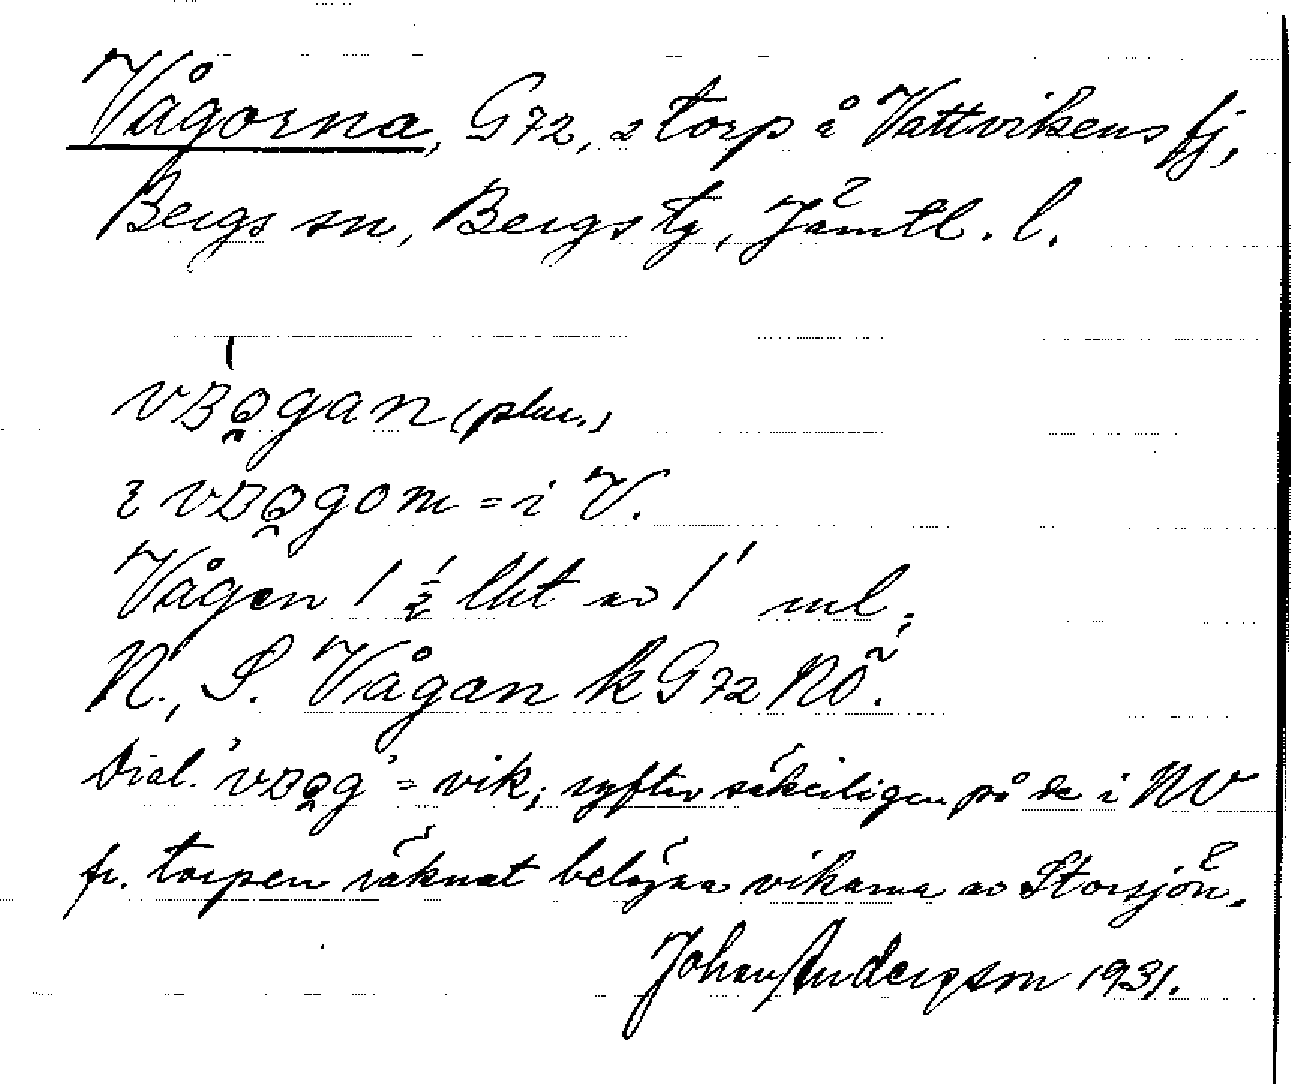 Vågorna, G72, 2 torp å Vattvikens fj,
Bergs sn, Bergs tg, Jämtl. l.
(plur.)
= i V.
Vågen 1 ½ lkt av 1 ml,
N., S. Vågan k G72 NÖ.
Dial. = vik; syftar såkeiligen på de i NV
fr. torpen räknat belägna vikarna av Storsjön.
Johan Anderson 1931.